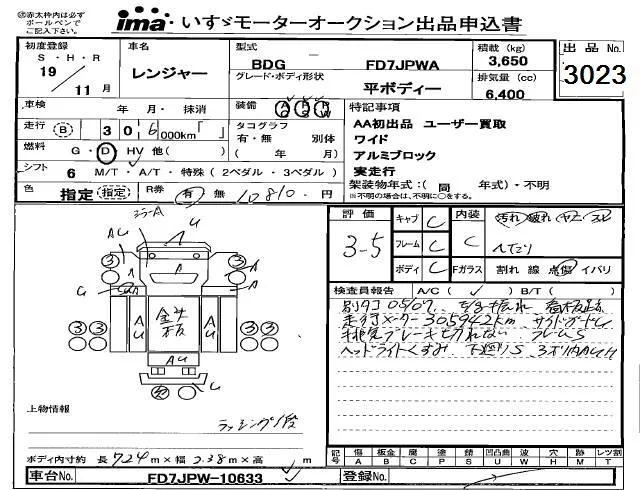 ㊟赤太枠内は必ず
ボールペンで
ご記入下さい。
ima いすゞモーターオークション出品申込書
初度登録 車名 型式 積載 (kg) 出品 No.
S・H・R
19／11月 レンジャー BDG FD7JPWA 3,650 3023
グレード・ボディ形状 排気量 (cc)
平ボディー 6,400
車検 年 月・抹消 装備 AC PS PW 特記事項
走行 B 306 000km「 」 タコグラフ AA初出品 ユーザー買取
有・無 別体 ワイド
燃料 G・D HV 他( ) ( 年 月) アルミブロック
シフト 6 M/T・A/T・特殊(2ペダル・3ペダル) 実走行
架装物年式:(同 年式)・不明
※不明の場合は、不明に○をする。
色 指定(指定) R券 有 無 10810.円
評価 3-5 キャブ C 内装 C 汚れ 破れ ヤニ
フレーム C ヘたり
ボディ C Fガラス 割れ 線 点傷 イバリ
検査員報告 A/C( ✓ ) B/T( )
別タコ05/07
走行メーター305942km サイドガード
排気ブレーキ切れない フレームS
ヘッドライトくすみ 下廻りS
ミラーA
U
AU
A
3 3
A
C
AU
金半板
AU
AU
3 3 3 3
U
上物情報
ラッシング1段
ボディ内寸約 長 724 m×幅 2.38 m×高 m
記号 傷 A 板金 B 腐 C 塗 P 錆 S 凹凸曲 U 波 W 穴 H 跡 M レツ割 T
車台No. FD7JPW-10633 登録No.